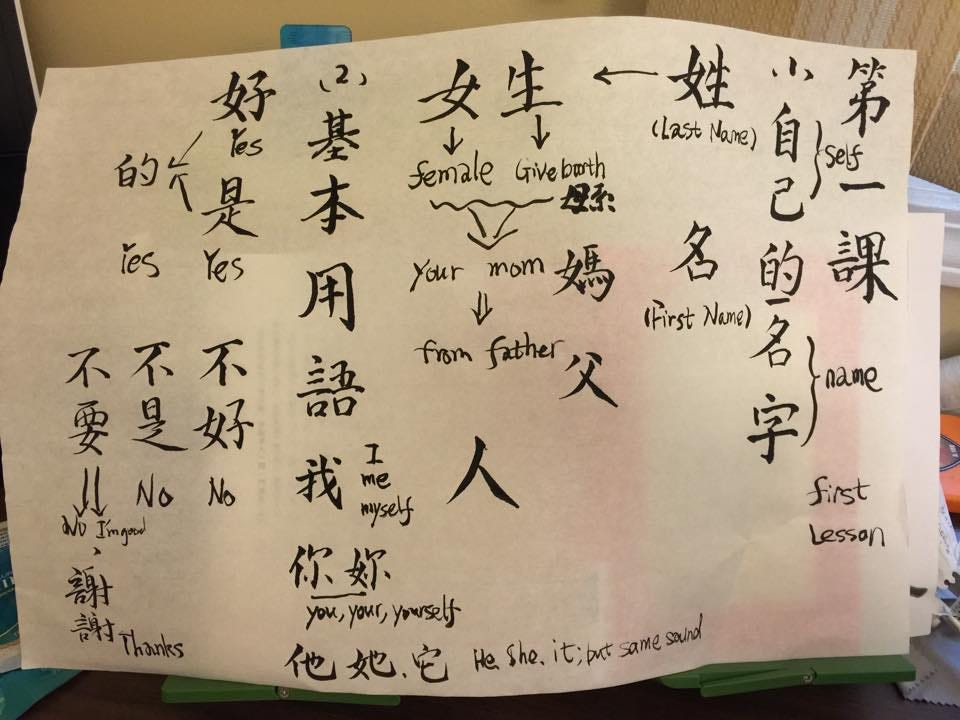 第一課
first
Lesson
(1) 自己的一名字
self
name
姓
(Last Name)
名
(First Name)
女生
female Give boarth
母系
your mom 媽
from father 父
人
(2) 基本用語
我
I
me
myself
你 妳
you, your, yourself
他 她、它 He, She, it; but same sound
好
Yes
是
Yes
的
Yes
不好
No
不是
No
不要
No I'm good
謝謝
Thanks